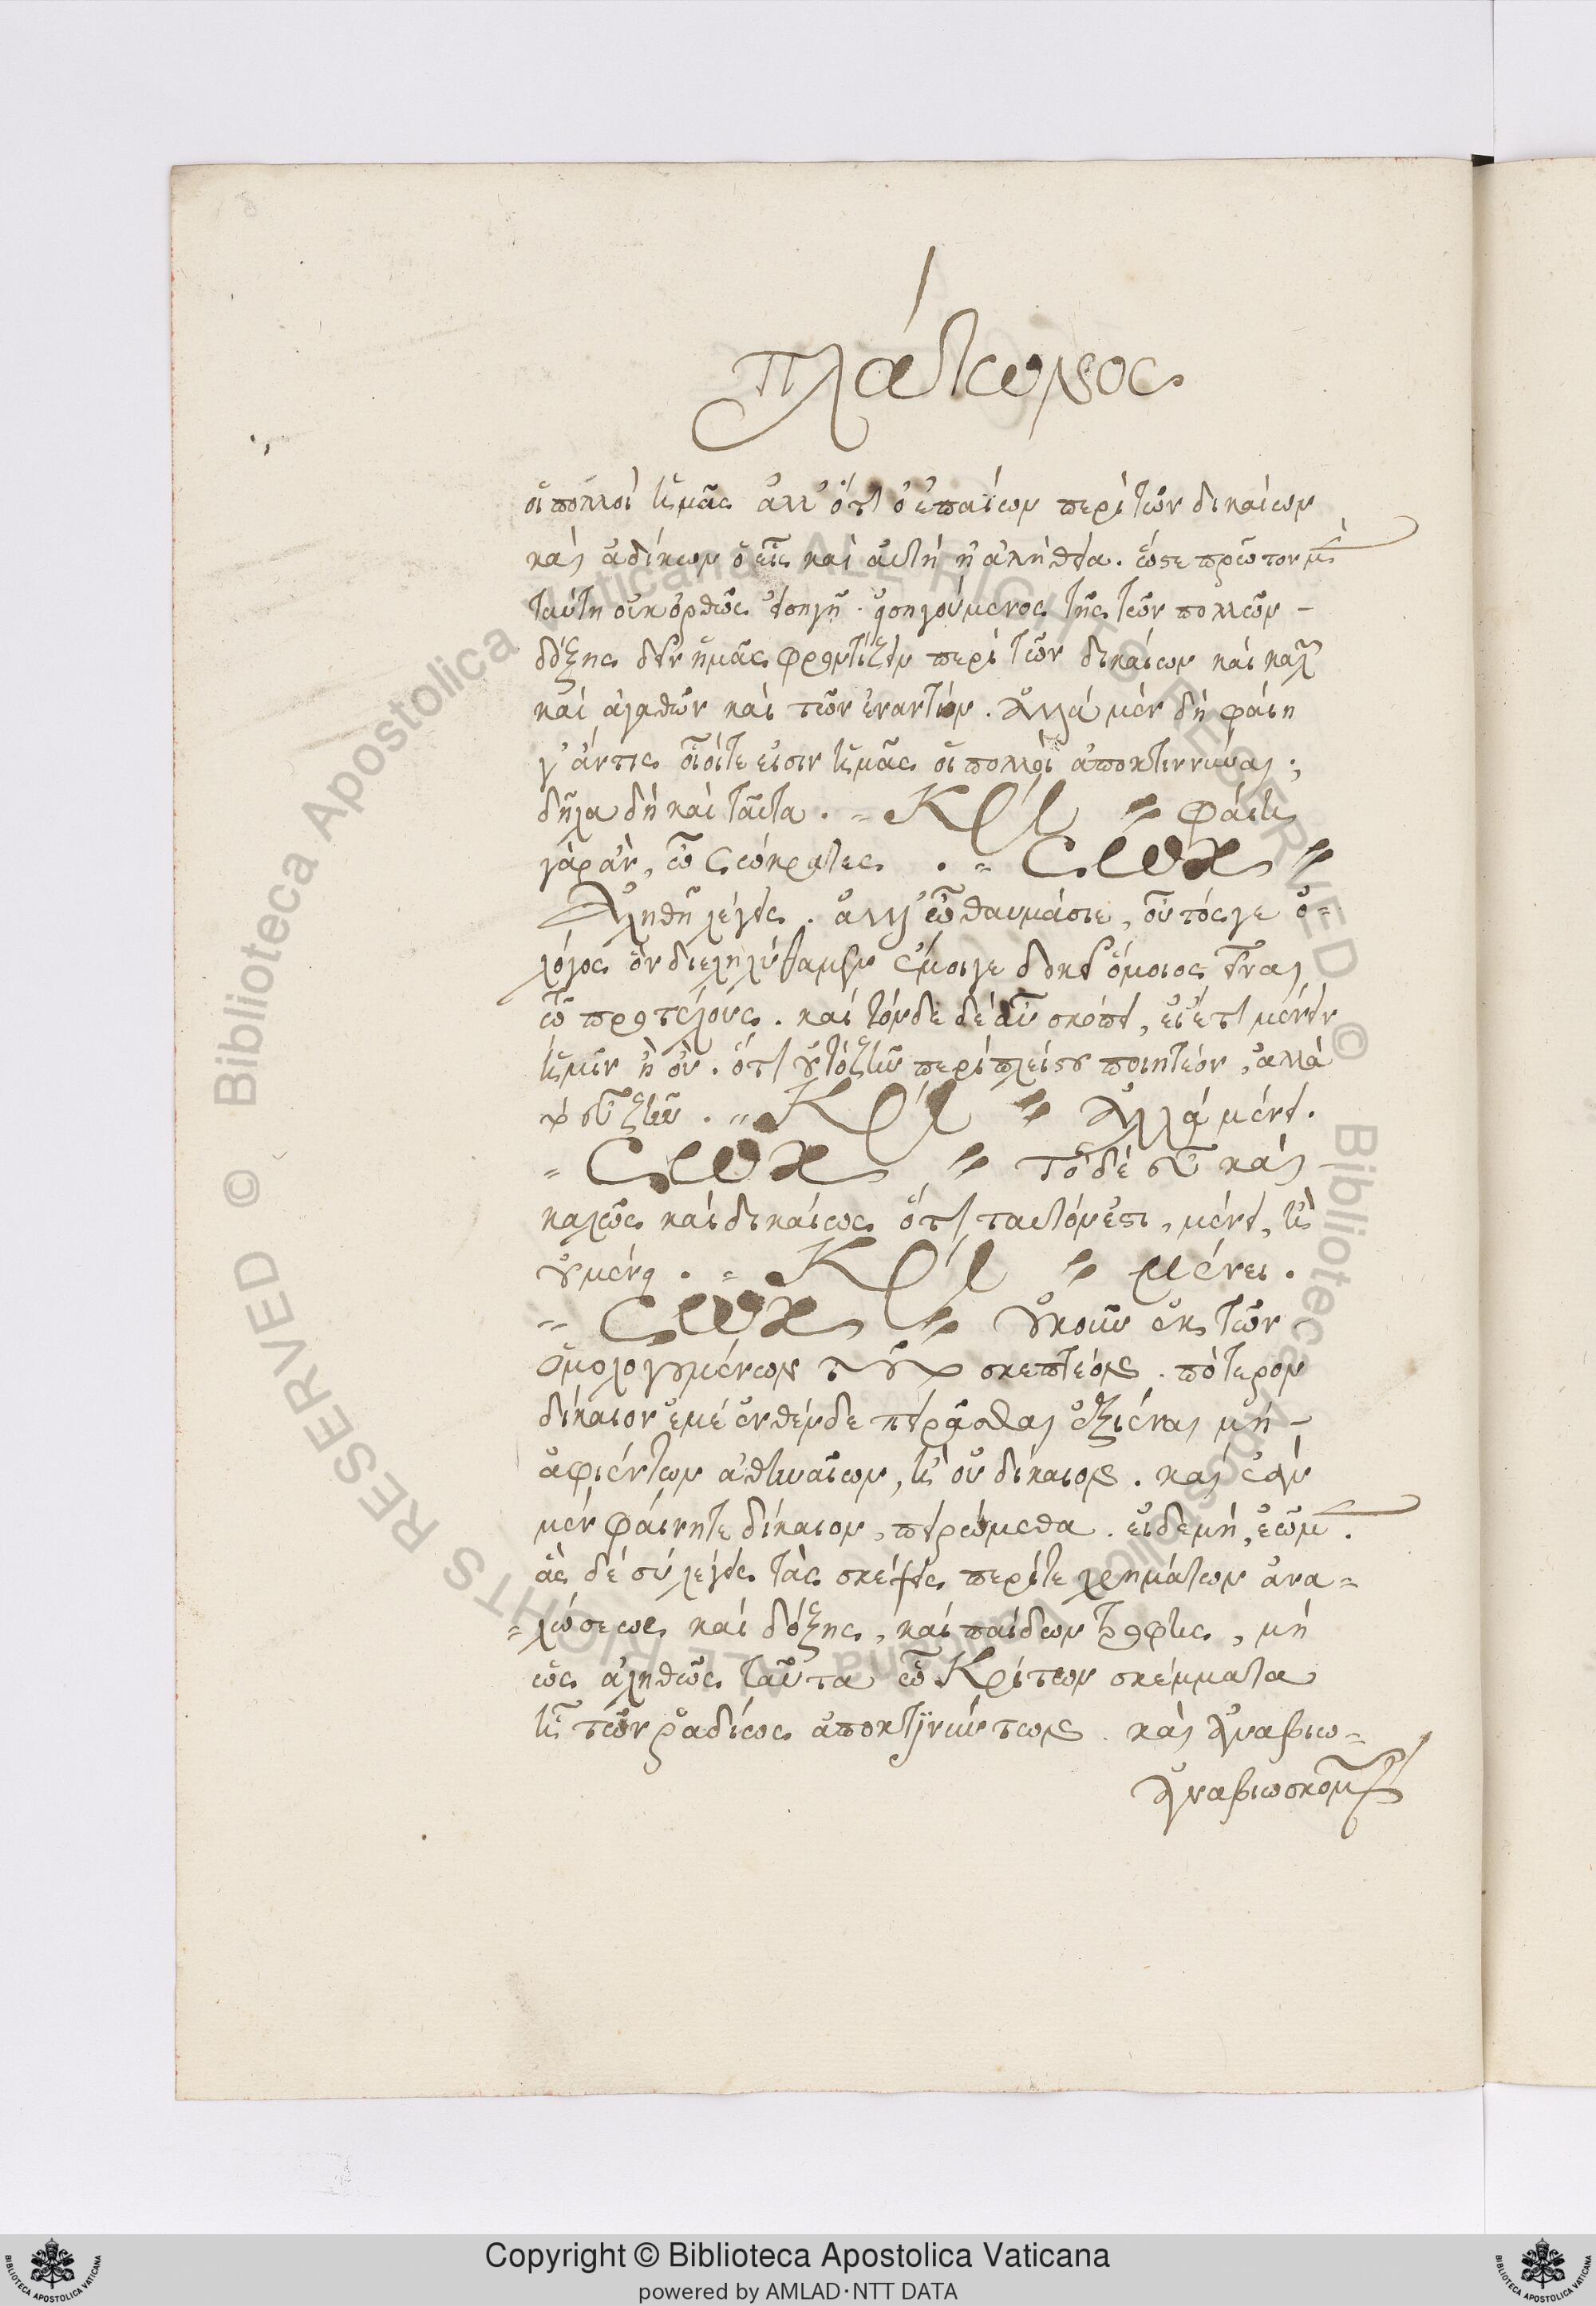 Πλάτωνος
οἱ πολλοὶ ἡμᾶς ἀλλ' ὅτι ὁ ἐπαΐων περὶ τῶν δικαίων
καὶ ἀδίκων ὁ εἷς καὶ αὐτὴ ἡ ἀλήθεια. ὥστε πρῶτον μὲν
ταύτη οὐκ ὀρθῶς εἰσηγῆ. εἰσηγούμενος τῆς τῶν πολλῶν
δόξης δεῖν ἡμᾶς φροντίζειν περὶ τῶν δικαίων καὶ καλῶν
καὶ ἀγαθῶν καὶ τῶν ἐναντίων. ἀλλὰ μὲν δὴ φαίη
γ' ἄν τις οἷοί τε εἰσιν ἡμᾶς οἱ πολλοὶ ἀποκτιννύναι;
δῆλα δὴ καὶ ταῦτα. = ΚΡΙ = φαίη
γὰρ ἂν, ὦ Σώκρατες. = ΣΩΚ =
Ἀληθῆ λέγεις. ἀλλ' ὦ θαυμάσιε, οὗτός γε ὁ =
λόγος ὃν διεληλύθαμεν ἔμοιγε δοκεῖ ὅμοιος εἶναι
τῶ προτέρους. καὶ τόνδε δὲ αὖ σκόπει, εἰ ἔτι μένει
ἡμῖν ἢ οὔ. ὅτι οὐ τὸ ζῆν περὶ πλείστου ποιητέον, ἀλλὰ
τὸ εὖ ζῆν. = ΚΡΙ = Ἀλλὰ μένει.
= ΣΩΚ = τὸ δὲ εὖ καὶ
καλῶς καὶ δικαίως ὅτι ταυτόν ἐστι, μένει, ἢ
οὐ μένει. = ΚΡΙ = μένει.
= ΣΩΚ = οὐκοῦν ἐκ τῶν
ὁμολογουμένων τοῦτο σκεπτέον. πότερον
δίκαιον ἐμὲ ἐνθένδε πειρᾶσθαι ἐξιέναι μὴ
ἀφιέντων ἀθηναίων, ἢ οὐ δίκαιον. καὶ ἐὰν
μὲν φαίνηται δίκαιον, πειρώμεθα. εἰ δὲ μή, ἐῶμεν.
ἃς δὲ σὺ λέγεις τὰς σκέψεις περί τε χρημάτων ἀνα=
=λώσεως καὶ δόξης, καὶ παίδων τροφῆς, μὴ
ὡς ἀληθῶς ταῦτα ὦ Κρίτων σκέμματα
ἦ τῶν ῥαδίως ἀποκτιννύντων. καὶ ἀναβιω=
ἀναβιωσκομένων